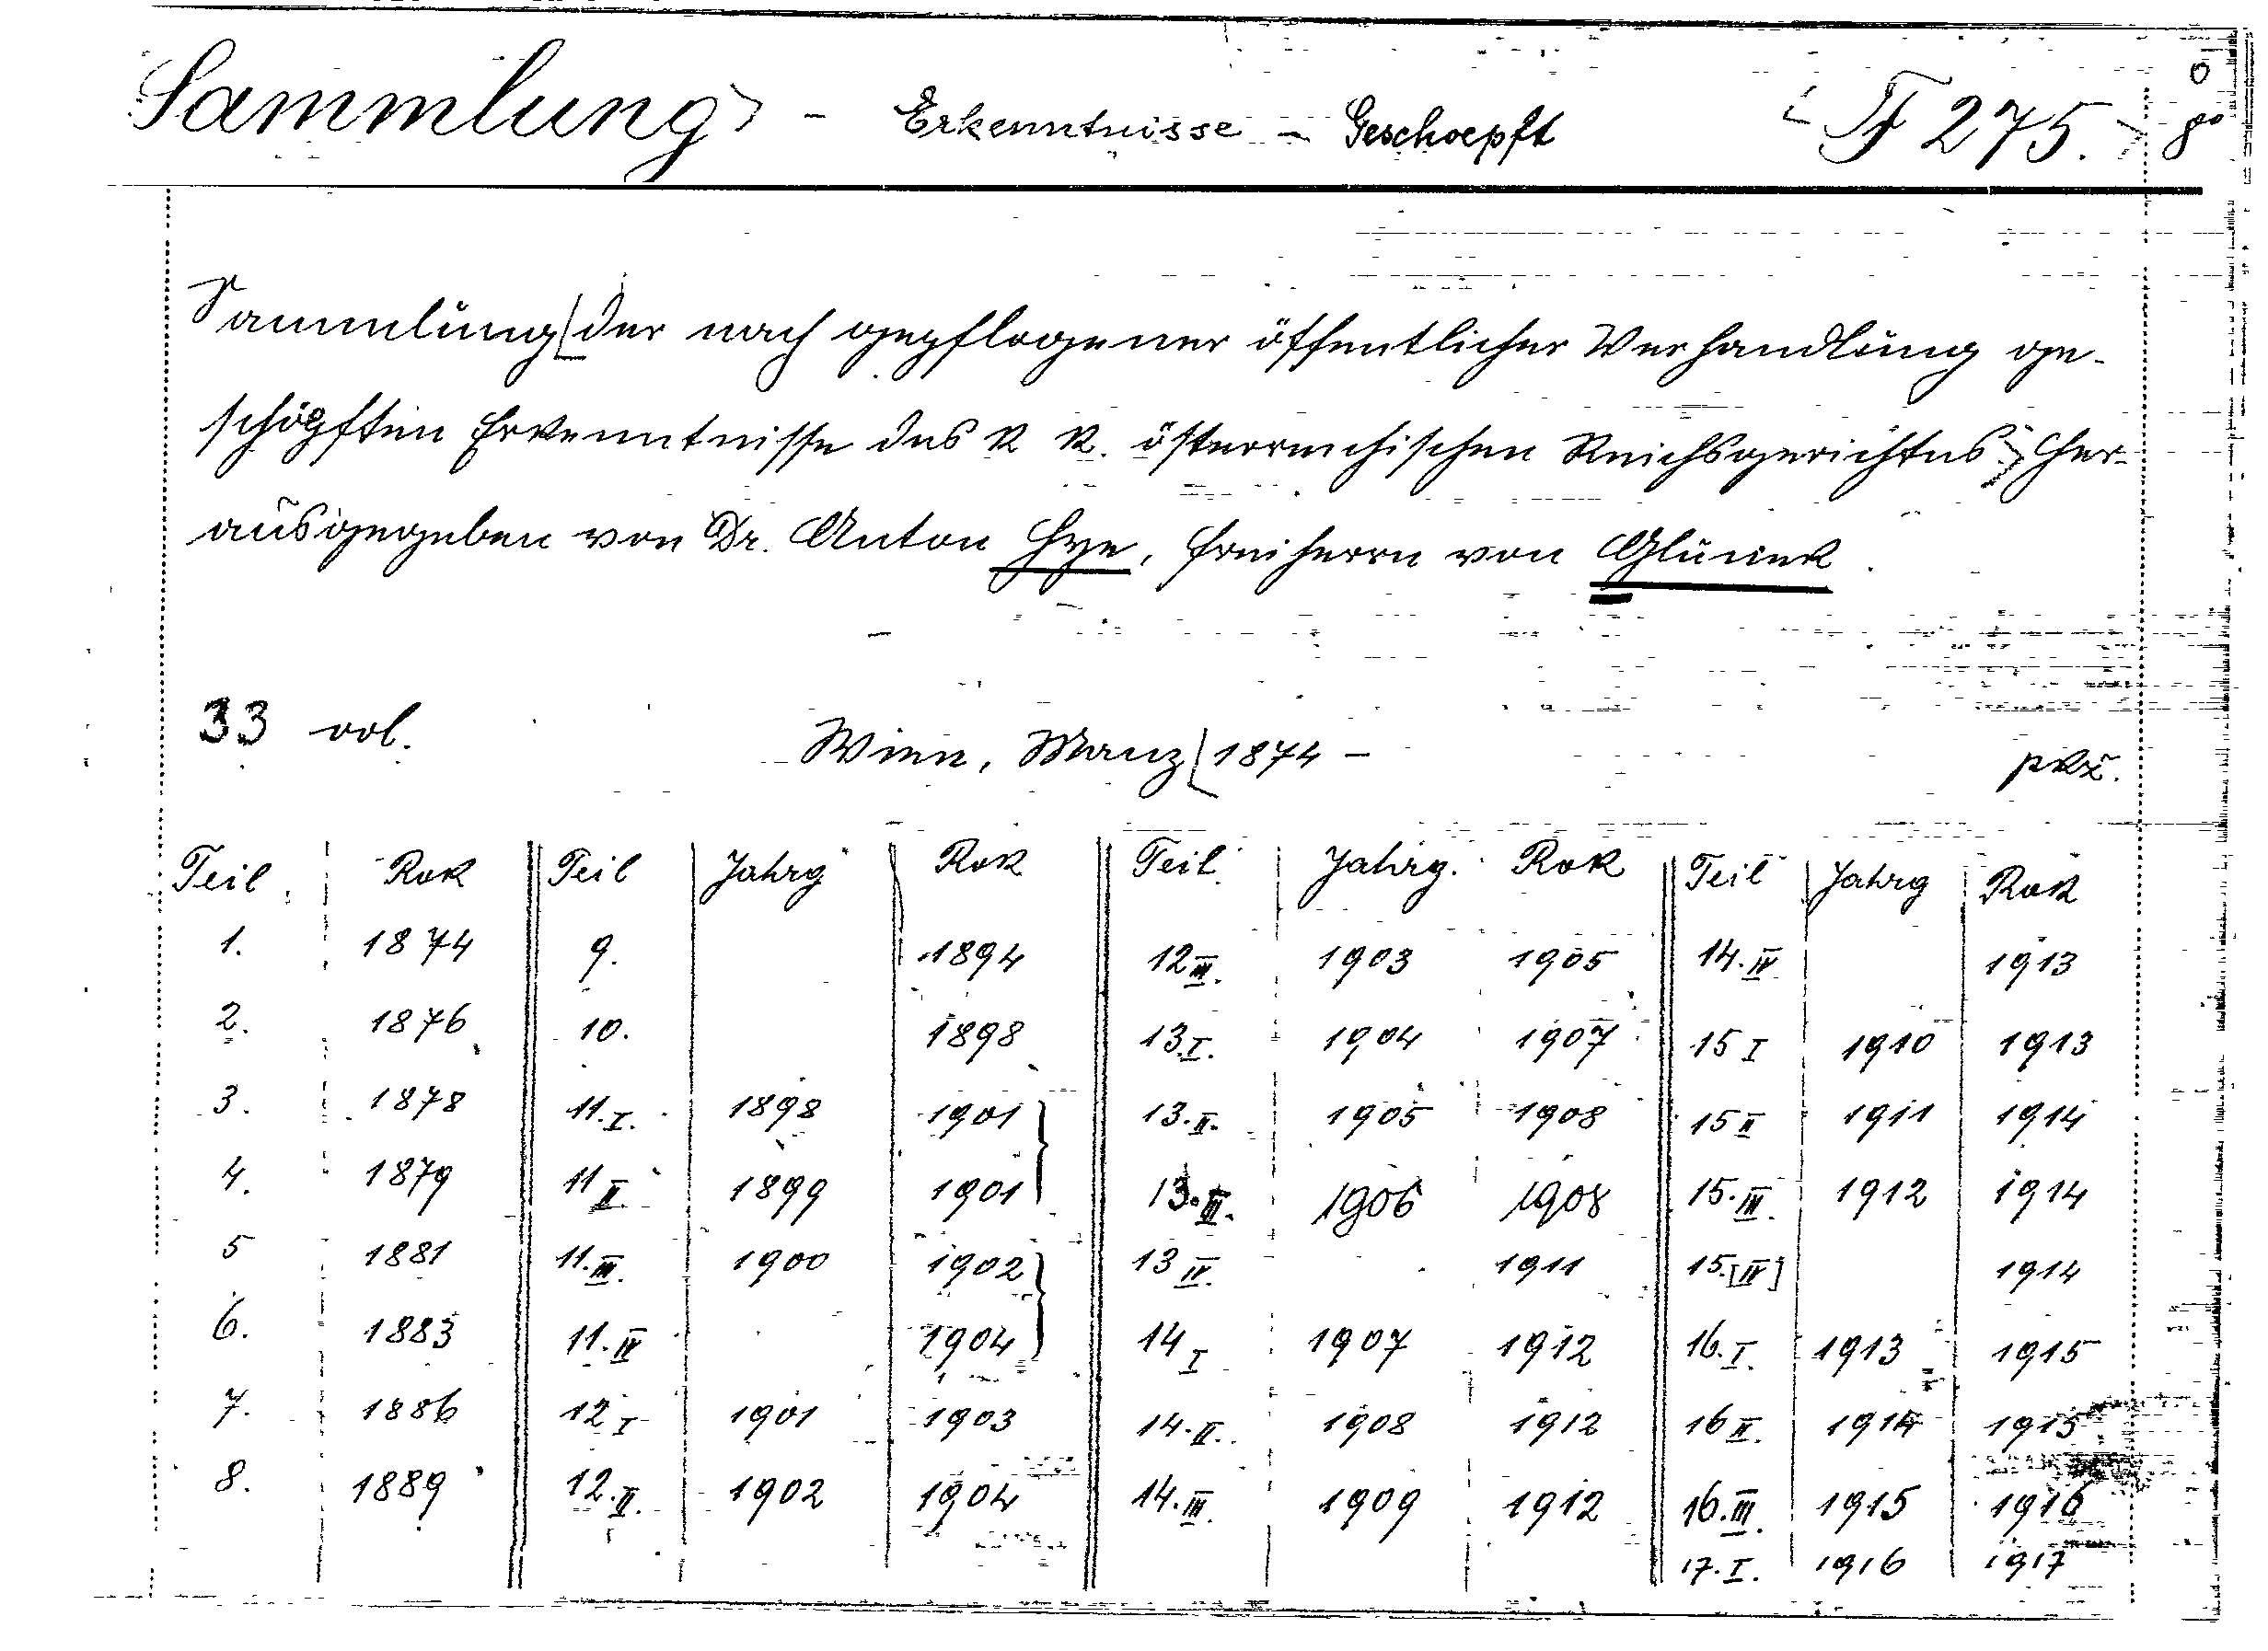 Sammlung - Erkenntnisse - Geschoepft F 275. 8°
Sammlung der nach gepflogener öffentlicher Verhandlung ge-
schöpften Erkenntnisse des k. k. österreichischen Reichsgerichtes; Her-
ausgegeben von Dr. Anton Hye, Freiherrn von Glunek.
33 vol. Wien, Manz 1874 -
Teil Rok Teil Jahrg Rok Teil Jahrg. Rok Teil Jahrg Rok
1. 1874 9. 1894 12 III. 1903 1905 14. IV 1913
2. 1876 10. 1898 13. I. 1904 1907 15 I 1910 1913
3. 1878 11. I. 1898 1901 13. II. 1905 1908 15 II 1911 1914
4. 1879 11 II. 1899 1901 13. III. 1906 1908 15. III. 1912 1914
5 1881 11. III. 1900 1902 13 IV. 1911 15. [IV] 1914
6. 1883 11. IV 1904 14 I 1907 1912 16. I. 1913 1915
7. 1886 12 I 1901 1903 14. II. 1908 1912 16 II. 1914 1915
8. 1889 12. II. 1902 1904 14. III. 1909 1912 16. III. 1915 1916
17. I. 1916 1917